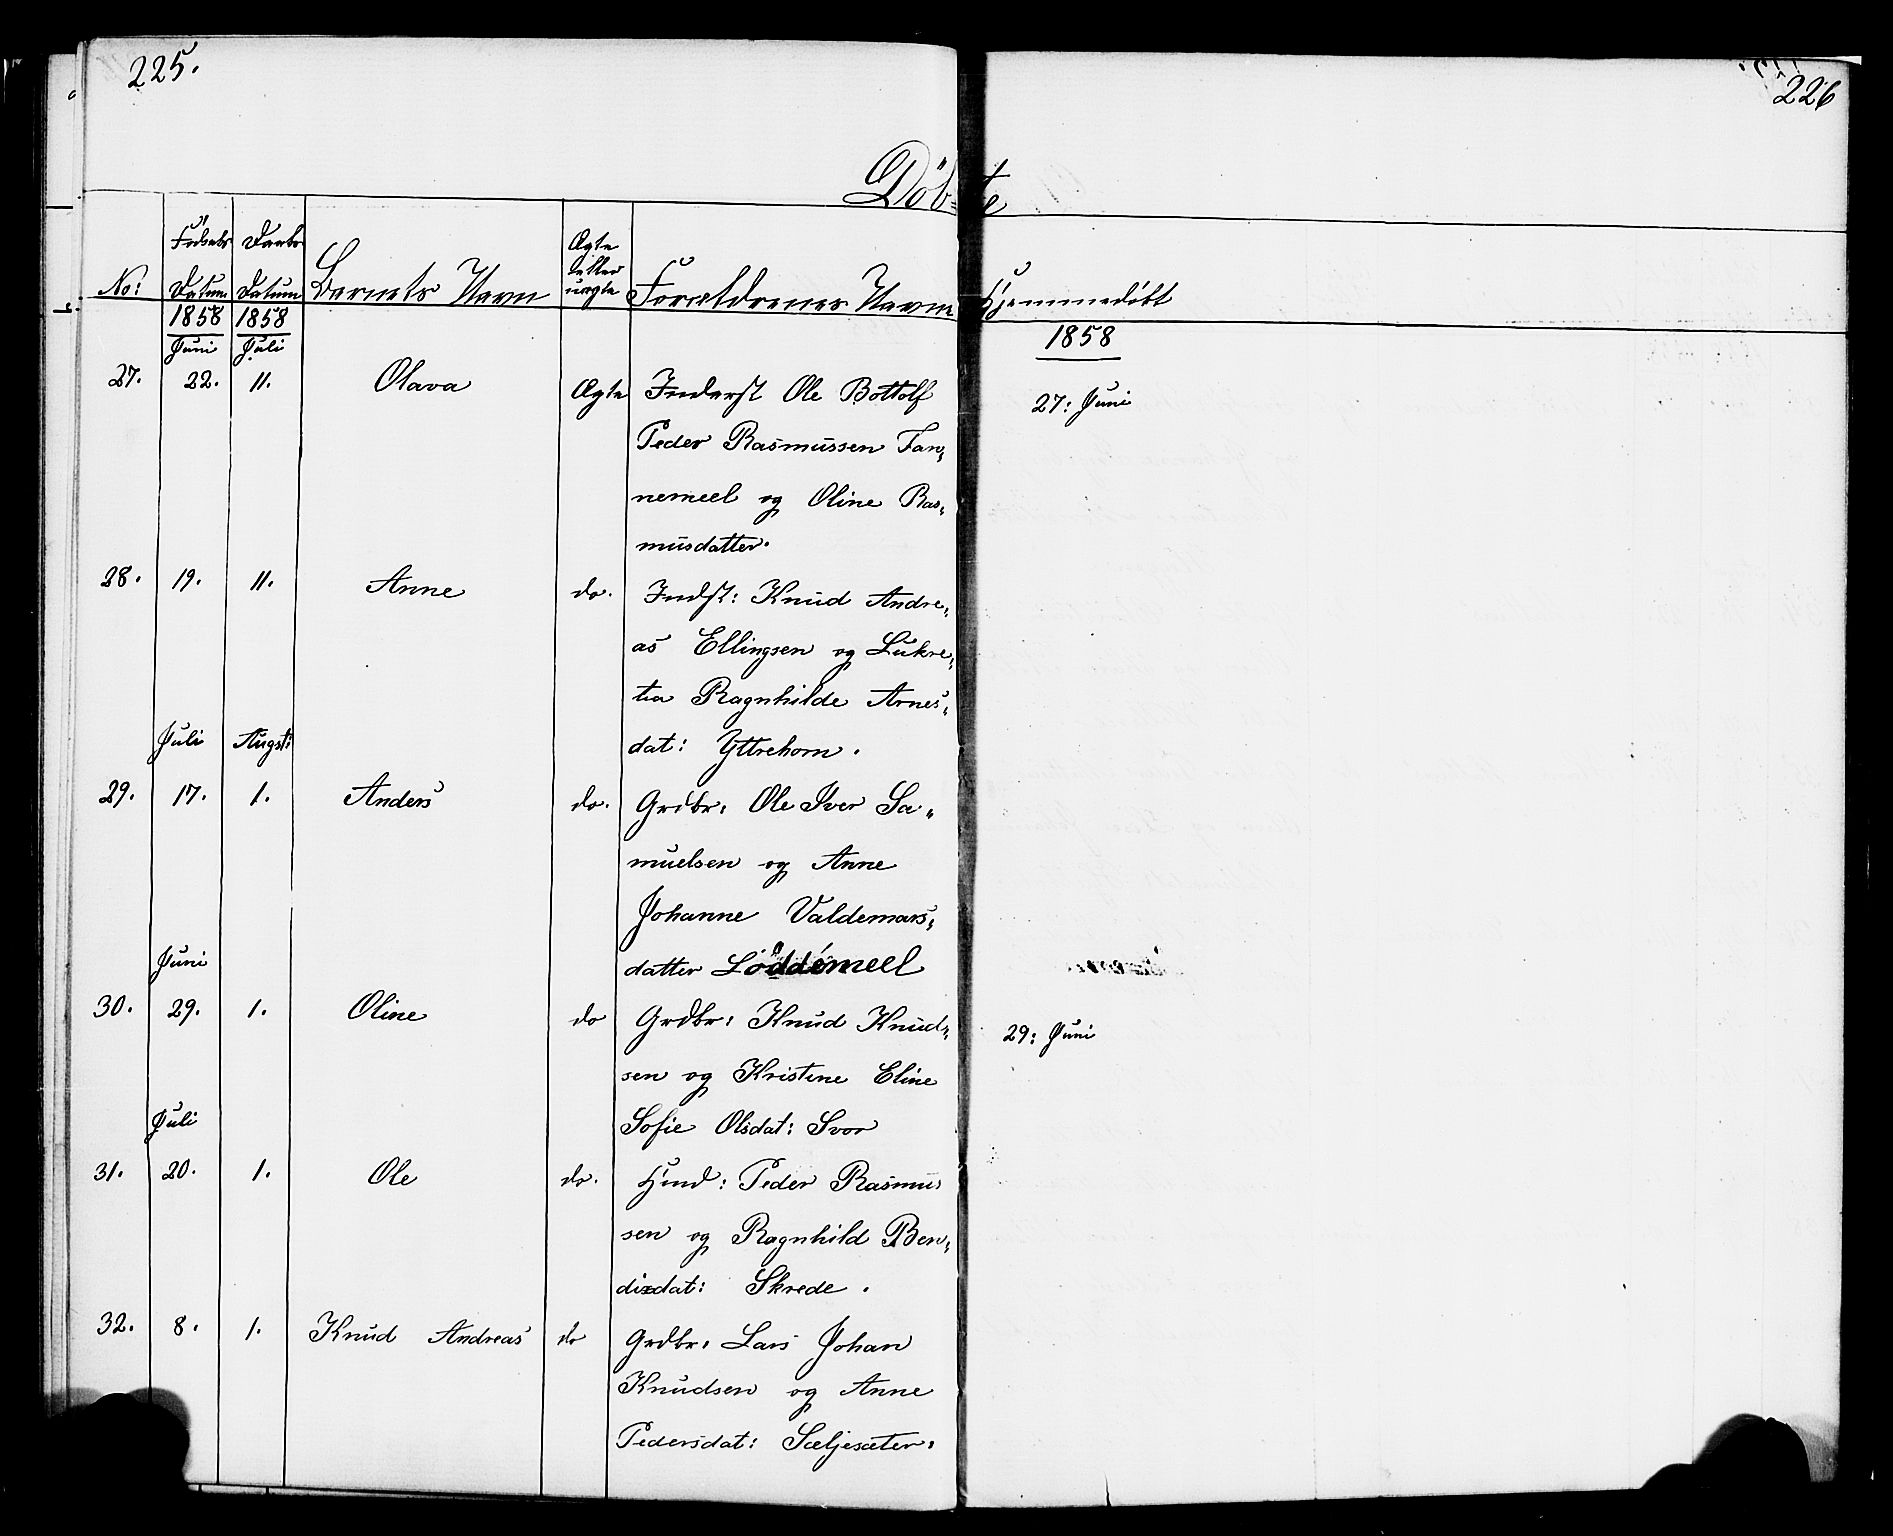 225.
226
Døbte
No:
Fødsels Datum
Daabs Datum
Barnets Navn
Ægte eller uægte
Forældrenes Navne
Hjemmedøbt
1858 1858 1858
Juni Juli
27. 22. 11. Olava Ægte Inderst Ole Bottolf 27: Juni
Peder Rasmussen Fan-
nemeel og Oline Ras-
musdatter.
28. 19. 11. Anne do. Indst: Knud Andre-
as Ellingsen og Lukre-
tia Ragnhilde Arnes-
Juli Augst: dat: Yttrehorn.
29. 17. 1. Anders do. Grdbr: Ole Iver Sa-
muelsen og Anne
Johanne Valdemars-
Juni datter Løddemeel
30. 29. 1. Oline do Grdbr: Knud Knud- 29: Juni
sen og Kristine Eline
Juli Sofie Olsdat: Svor
31. 20. 1. Ole do. Hmd: Peder Rasmu-
sen og Ragnhild Ben-
dixdat: Skrede.
32. 8. 1. Knud Andreas do Grdbr: Lars Johan
Knudsen og Anne
Pedersdat: Sæljesæter.